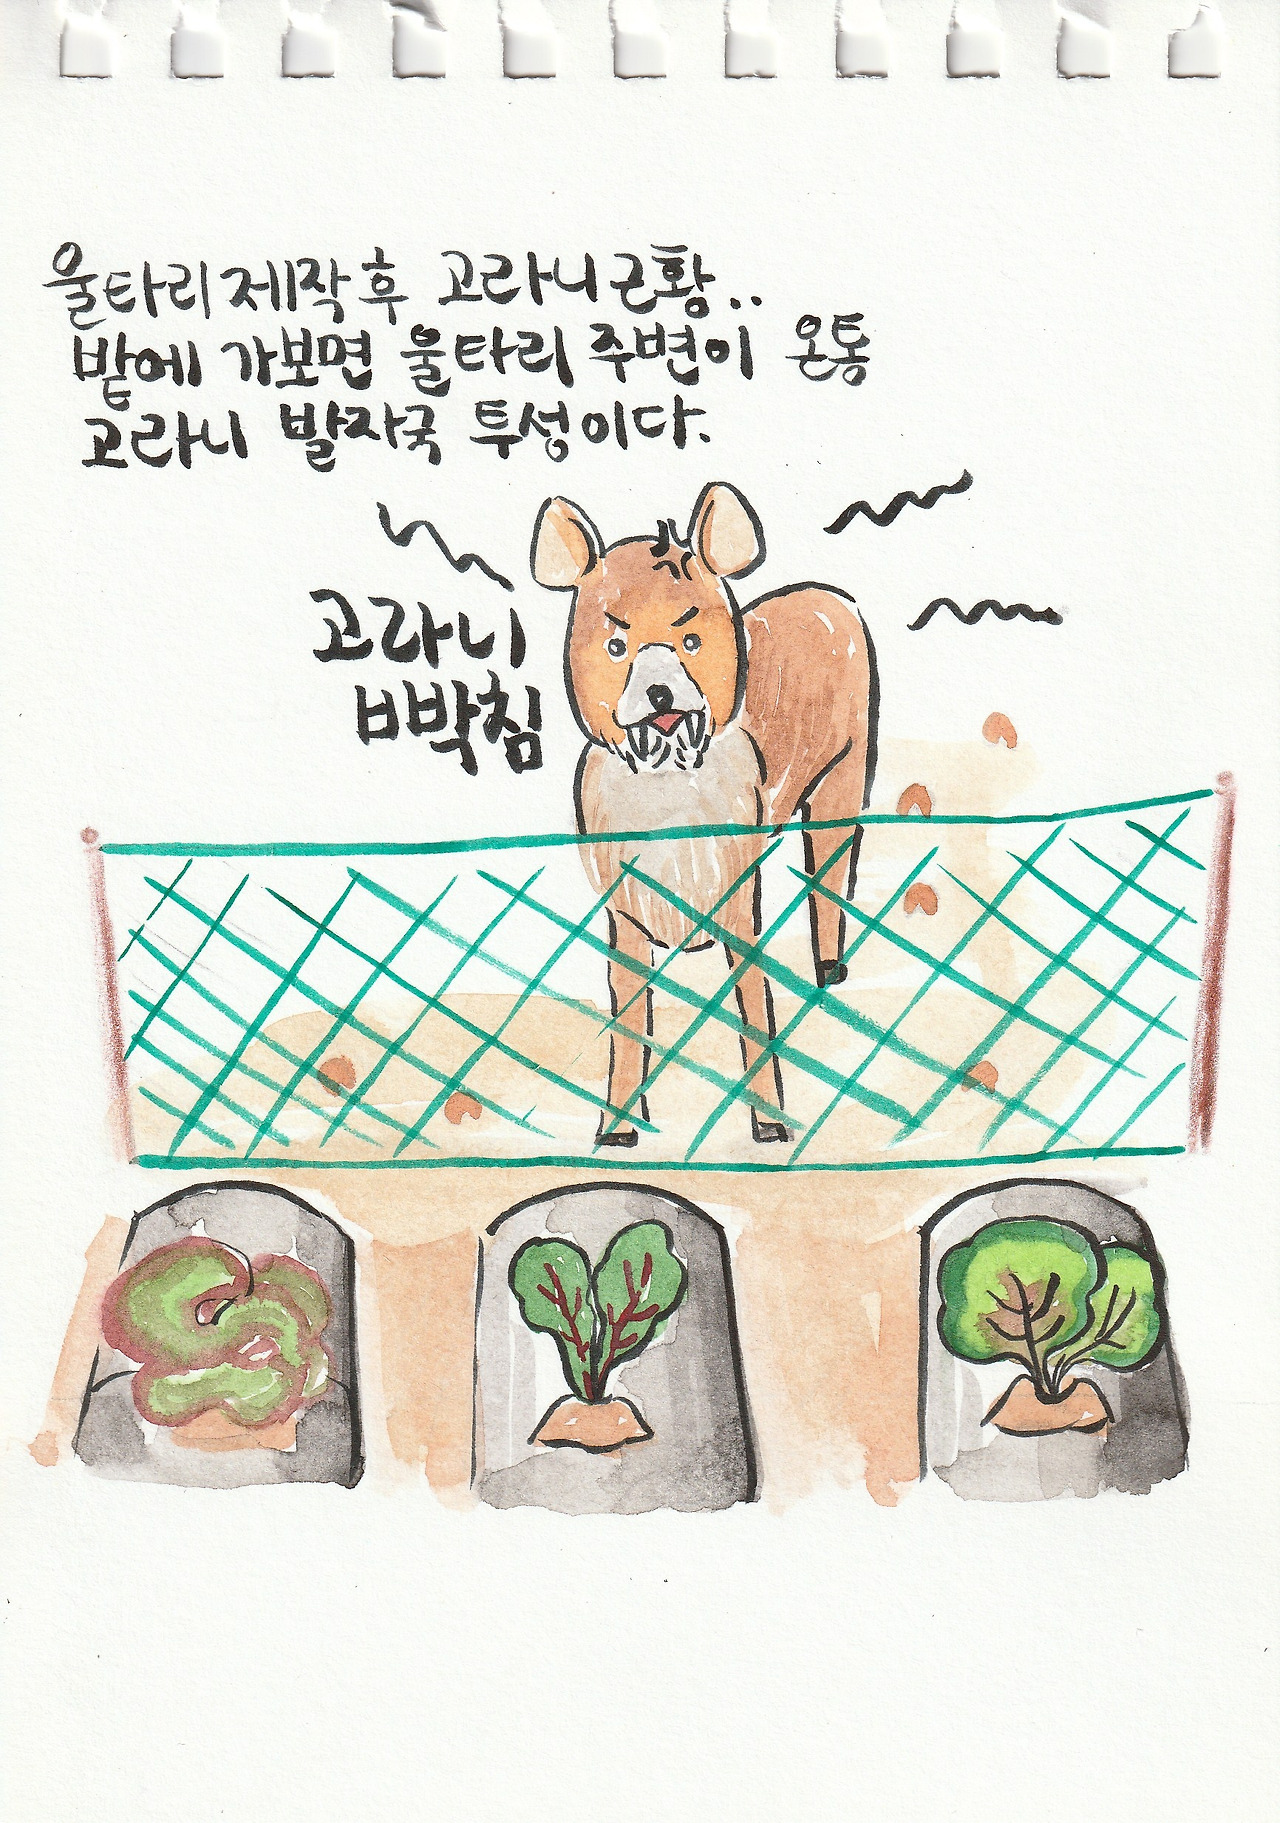 울타리 제작 후 고라니 근황..
밭에 가보면 울타리 주변이 온통
고라니 발자국 투성이다.
고라니
ㅂ박침